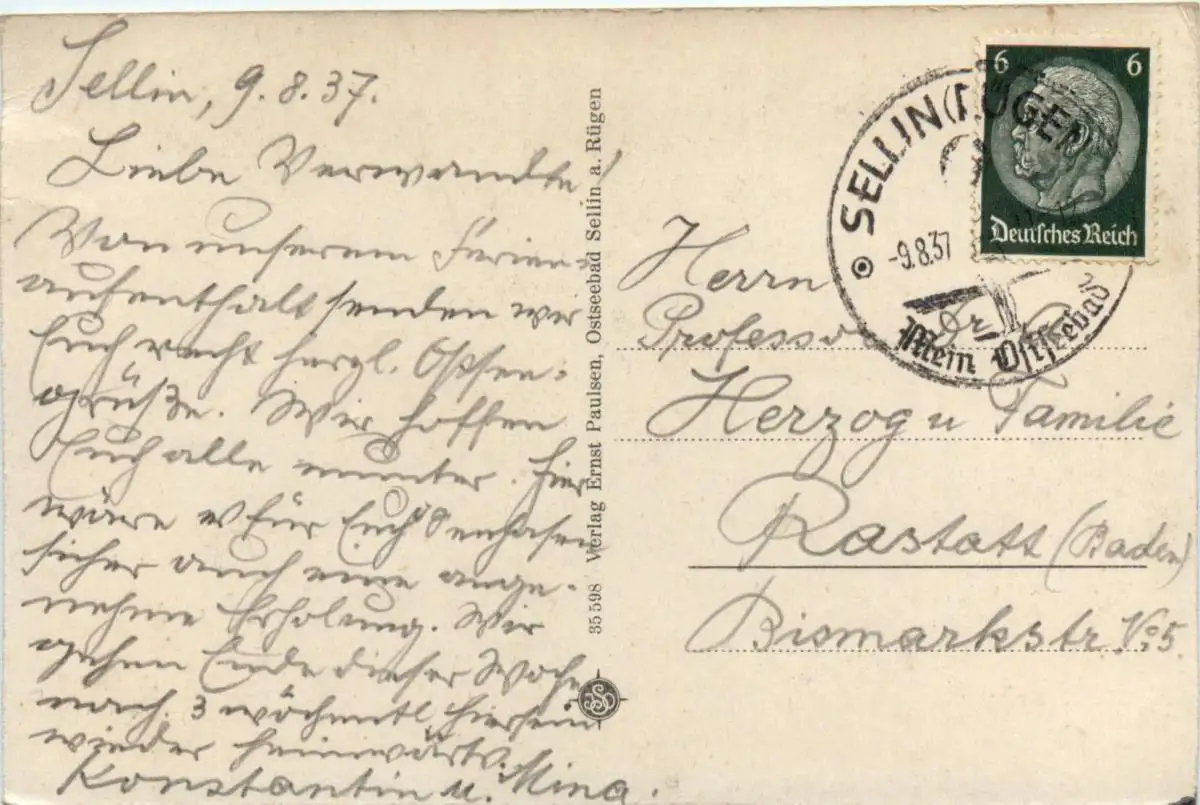 Sellin, 9.8.37.
Liebe Verwandte!
Von unserem Ferien=
aufenthalt senden wir
Euch recht herzl. Ostsee=
grüße. Wir hoffen
Euch alle munter. Hier
wäre es für Euch
sicher auch eine ange=
nehme Erholung. Wir
gehen Ende dieser Woche
nach 3 wöchentl. Hiersein
wieder heimwärts.
Konstantin u. Mina.
35598 Verlag Ernst Paulsen, Ostseebad Sellin a. Rügen
6 6
Deutsches Reich
SELLIN (RÜGEN)
-9.8.37
Mein Ostseebad
Herrn
Professor Dr
Herzog u Familie
Rastatt (Baden)
Bismarkstr. No. 5.